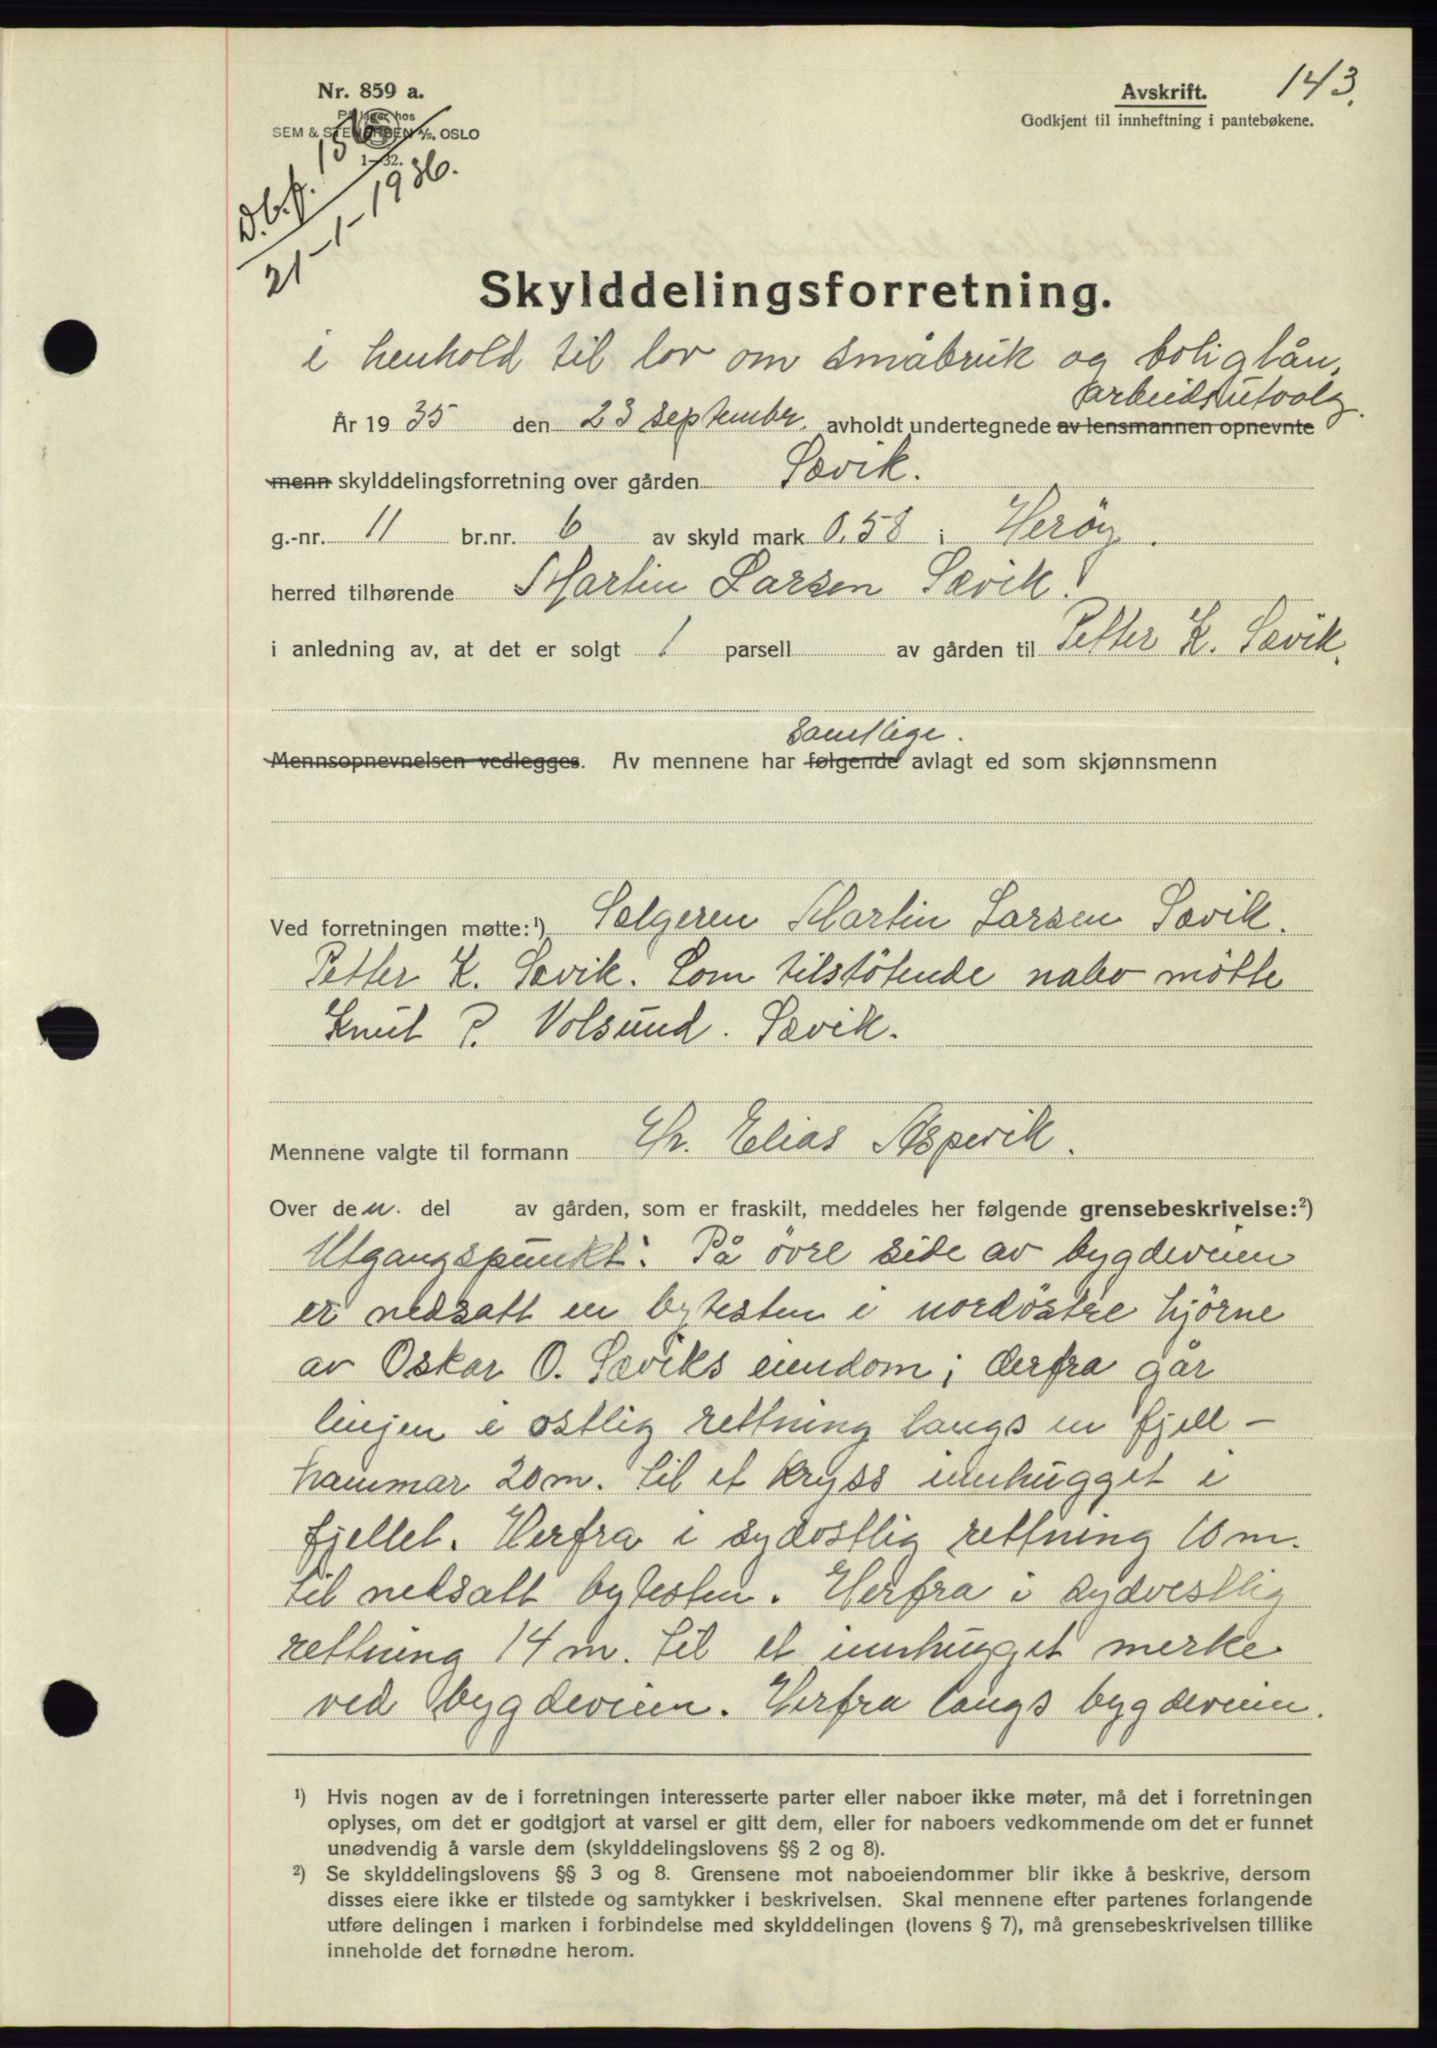 143.
Nr. 859 a.
På lager hos
SEM & STENERSEN A/S, OSLO
1—32.
Avskrift.
Godkjent til innheftning i pantebøkene.
D.b.f. 156
21-1-1936.
Skylddelingsforretning.
i henhold til lov om småbruk og boliglån.
arbeidsutvalg.
År 1935 den 23 september. avholdt undertegnede av lensmannen opnevnte
menn skylddelingsforretning over gården Sævik.
g.-nr. 11 br.nr. 6 av skyld mark 0,58 i Herøy.
herred tilhørende Martin Larsen Sævik.
i anledning av, at det er solgt 1 parsell av gården til Petter K. Sævik.
samtlige.
Mennsopnevnelsen vedlegges. Av mennene har følgende avlagt ed som skjønnsmenn
Ved forretningen møtte:¹) Sælgeren Martin Larsen Sævik.
Petter K. Sævik. Som tilstötende nabo mötte
Knut P. Volsund. Sævik.
Mennene valgte til formann Hr. Elias Aspevik.
Over den. del av gården, som er fraskilt, meddeles her følgende grensebeskrivelse:²)
Utgangspunkt: På övre side av bygdeveien
er nedsatt en bytesten i nordöstre hjörne
av Oskar O. Sæviks eiendom; derfra går
linjen i ostlig rettning langs en fjell-
hammar 20 m. til et kryss innhugget i
fjellet. Herfra i sydostlig rettning 10 m.
til nedsatt bytesten. Herfra i sydvestlig
rettning 14 m. til et innhugget merke
ved bygdeveien. Herfra langs bygdeveien.
¹) Hvis nogen av de i forretningen interesserte parter eller naboer ikke møter, må det i forretningen
oplyses, om det er godtgjort at varsel er gitt dem, eller for naboers vedkommende om det er funnet
unødvendig å varsle dem (skylddelingslovens §§ 2 og 8).
²) Se skylddelingslovens §§ 3 og 8. Grensene mot naboeiendommer blir ikke å beskrive, dersom
disses eiere ikke er tilstede og samtykker i beskrivelsen. Skal mennene efter partenes forlangende
utføre delingen i marken i forbindelse med skylddelingen (lovens § 7), må grensebeskrivelsen tillike
inneholde det fornødne herom.